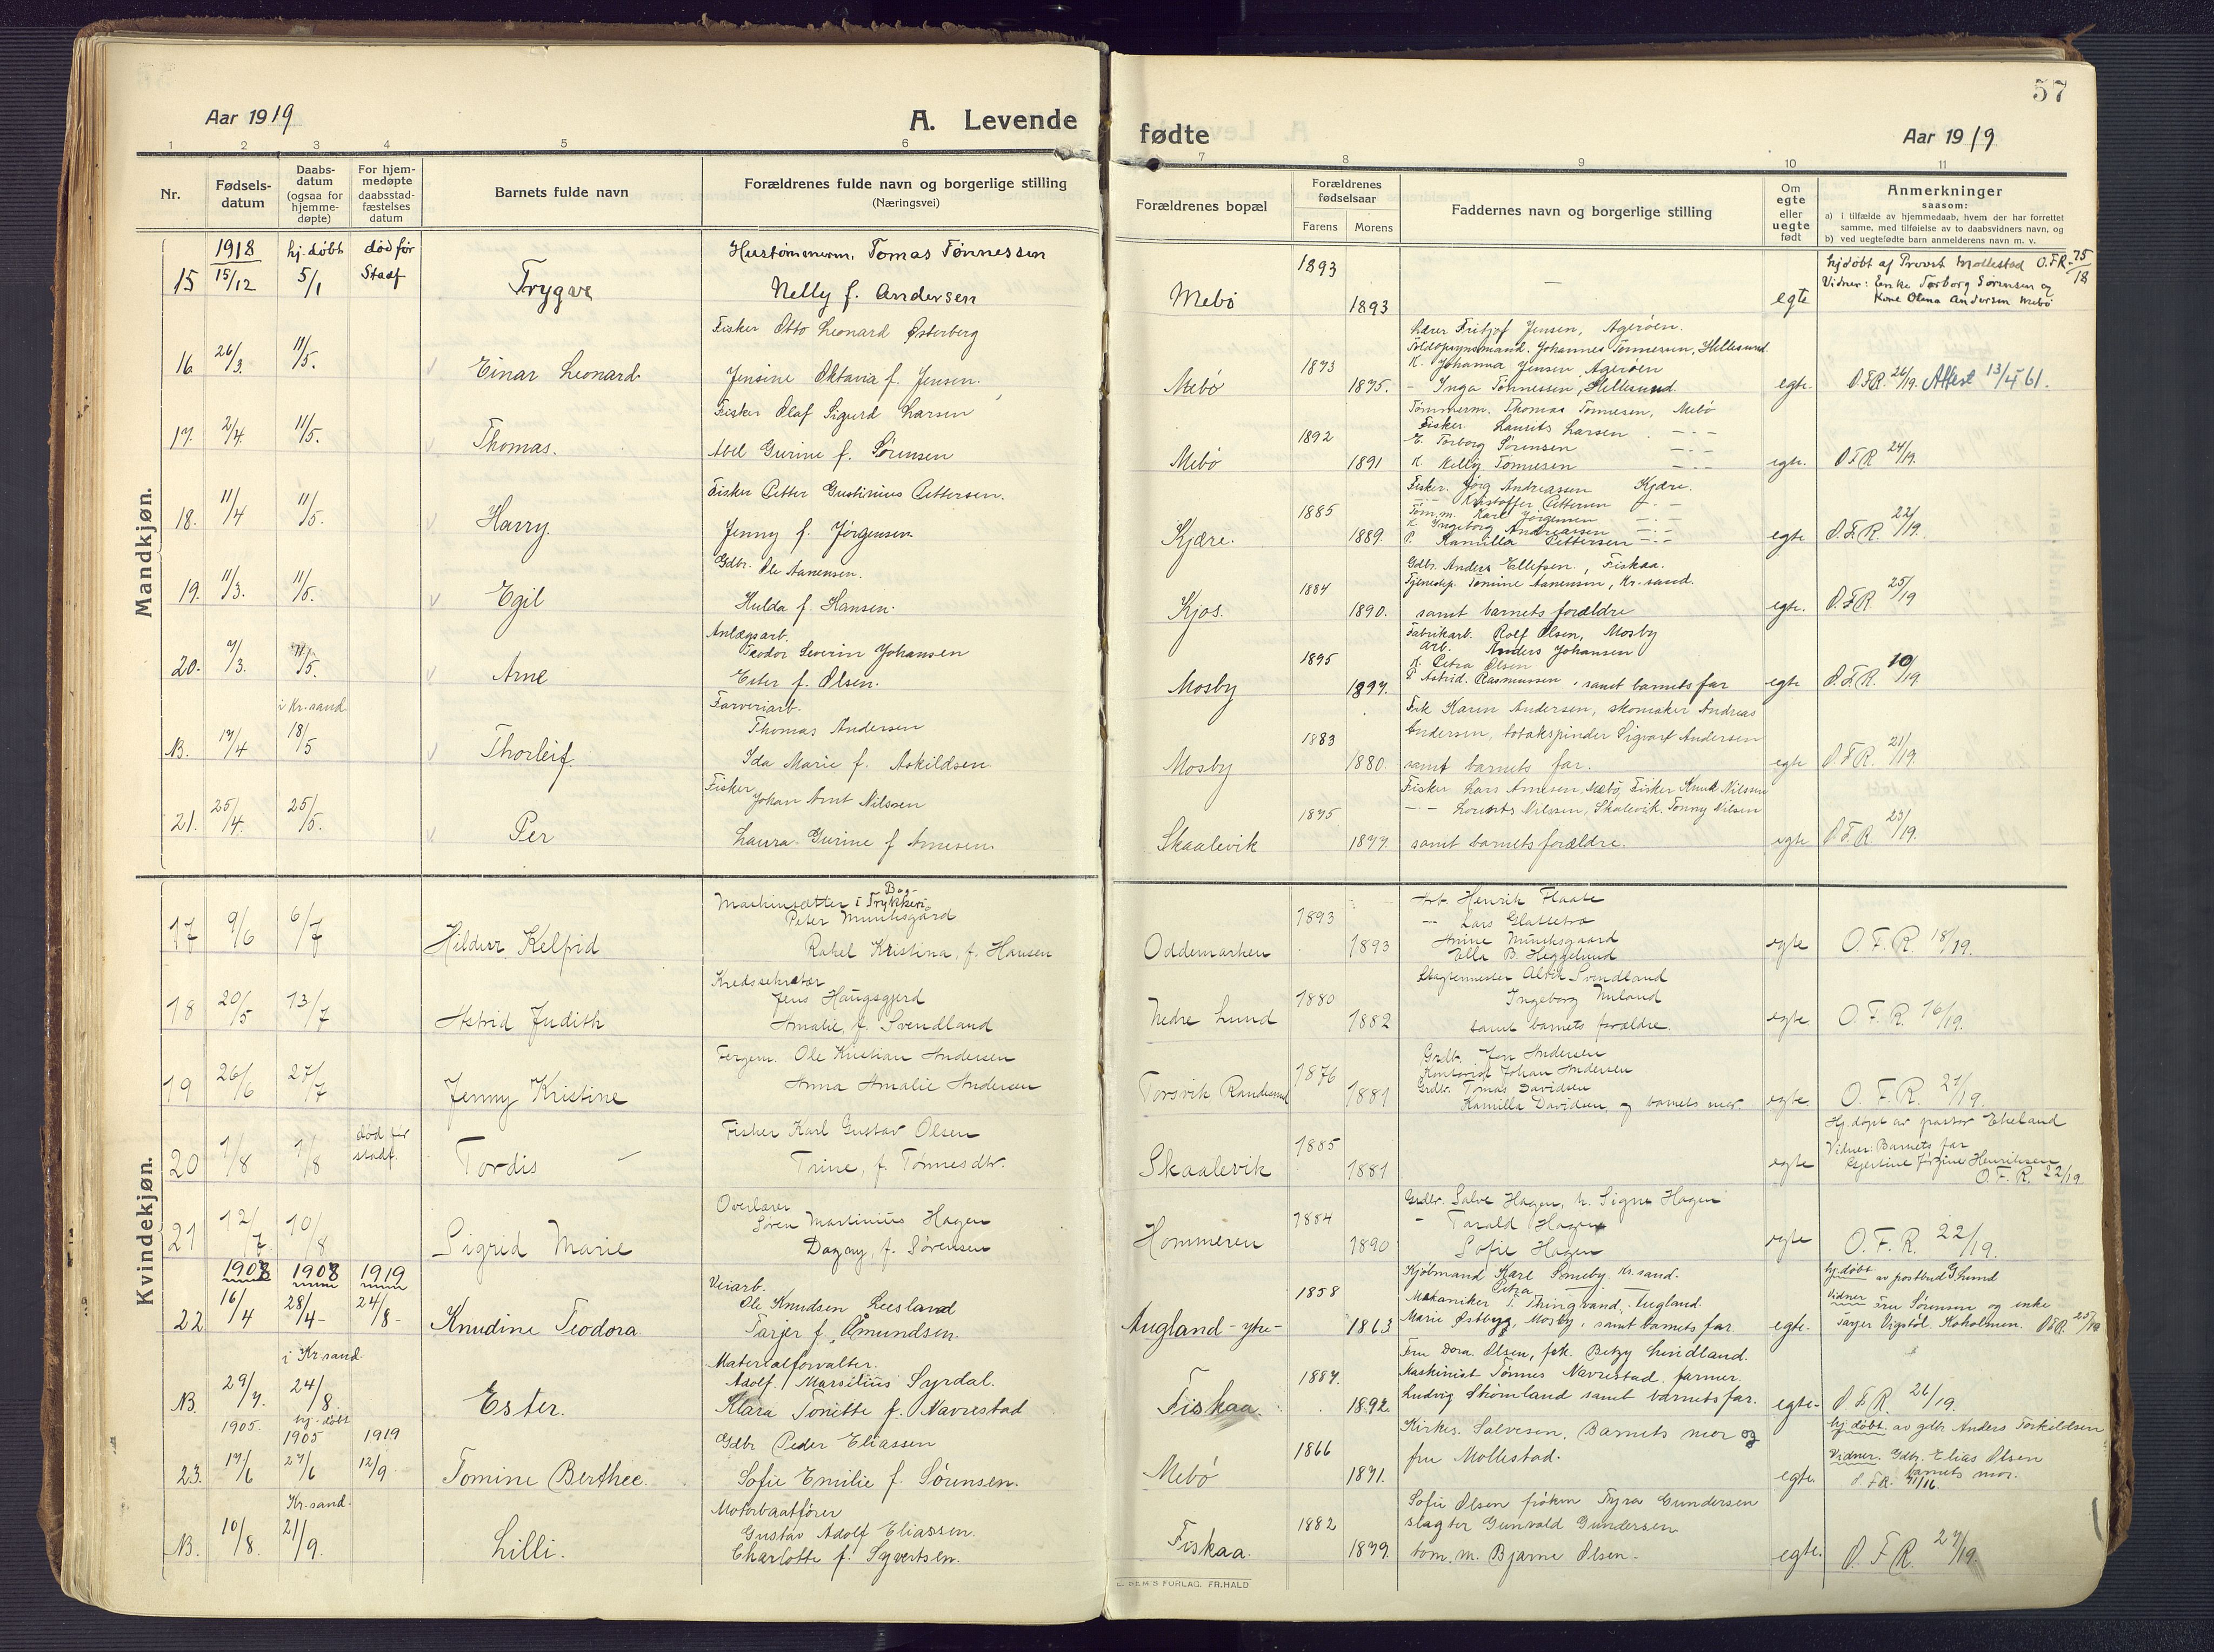 57
Aar 1919
A. Levende
fødte
Aar 1919
1 2 3 4 5 6 7 8 9 10 11
Nr.
Fødsels-
datum
Daabs-
datum
(ogsaa for
hjemme-
døpte)
For hjem-
medøpte
daabsstad-
fæstelses
datum
Barnets fulde navn
Forældrenes fulde navn og borgerlige stilling
(Næringsvei)
Forældrenes bopæl
Forældrenes
fødselsaar
Farens Morens
Faddernes navn og borgerlige stilling
Om
egte
eller
uegte
født
Anmerkninger
saasom:
a) i tilfælde av hjemmedaab, hvem der har forrettet
samme, med tilføielse av to daabsvidners navn, og
b) ved uegtefødte barn anmelderens navn m. v.
Mandkjøn.
15 1918 15/12 hj. døbt 5/1 død før Stadf
Trygve
Hustømmerm. Tomas Tønnessen
Nelly f. Andersen
Mebø 1893 1893 — egte
hjdøbt af Provst Mollestad O.F.R. 75/18
Vidner: Enke Torborg Sørensen og
Kone Olena Andersen Mebø
16 26/3. 11/5.
Einar Leonard
Fisker Otto Leonard Østerberg
Jensine Oktavia f. Jensen.
Mebø 1893 1895.
Lærer Fritjof Jensen, Agerøen.
Toldopsynsmand. Johannes Tønnessen, Hellesund.
K. Johanna Jensen, Agerøen
- Inga Tønnessen, Hellesund.
egte. O.F.R. 26/19. Attest 13/4 61.
17. 2/4. 11/5.
Thomas.
Fisker Olaf Sigurd Larsen
Abel Gurine f. Sørensen
Mebø 1892 1891
Tømmerm. Thomas Tønnesen, Mebø
Fisker Laurits Larsen - . -
E. Torborg Sørensen - . -
K. Nelly Tønnesen - . -
egte. O.F.R 24/19.
18. 11/4 11/5.
Harry.
Fisker Petter Gustinius Pettersen.
Jenny f. Jørgensen
Kjære. 1885 1889.
Fisker. Jørg Andreassen Kjære.
- Kristoffer Pettersen - . -
Tøm.m. Karl Jørgensen - . -
K. Ingeborg Andreassen - . -
P. Kamilla Pettersen - . -
egte O.F.R. 22/19.
19. 11/3. 11/5.
Egil
Gdbr. Ole Aanensen.
Hulda f. Hansen.
Kjos. 1884 1890.
Gdbr. Anders Ellefsen, Fiskaa.
Tjenestep. Tomine Aanensen, Kr. sand.
samt barnets forældre
egte. O.F.R. 25/19
20. 7/3. 11/5.
Arne
Anlægsarb.
Teodor Severin Johansen
Ester f. Olsen.
Mosby 1895 1897.
Fabrikarb. Rolf Olsen, Mosby
Arb. Anders Johansen
K. Petra Olsen
P. Astrid Rasmussen. samt barnets far
egte O.F.R. 10/19
NB. 17/4 i Kr. sand 18/5
Thorleif.
Farveriarb.
Thomas Andersen
Ida Marie f. Askildsen
Mosby 1883 1880.
Frk Karen Andersen, skomaker Andreas
Andersen, tobakspinder Sigvart Andersen
samt barnets far.
egte O.F.R. 21/19.
21. 25/4. 25/5.
Per
Fisker
Johan Arnt Nilssen
Laura Gurine f Arnesen.
Skaalevik 1895 1897.
Fisker Lars Arnesen, Mebø, Fisker Knut Nilssen
- . - Lourits Nilssen, Skalevik. Tonny Nilsen
samt barnets forældre.
egte O.F.R 23/19.
Kvindekjøn.
17 9/6 6/7
Hildur Kelfrid
Maskinsætter i Bog-Trykkeri
Peter Munksgård
Rakel Kristina, f. Hansen
Oddemarken 1893 1893
Arb. Henrik Flaate
- Lars Glattetre
Anine Munksgaard
Ella B. Heggelund
egte O.F.R. 18/19.
18 20/5 13/7
Astrid Judith
Kredssekretær
Jens Haugsgjerd
Amalie, f. Svendland
Nedre Lund 1880 1882
Slagtermester Alvin Svindland
Ingeborg Nuland
samt barnets forældre.
egte O.F.R. 16/19.
19 26/6 27/7
Jenny Kristine
Fergem. Ole Kristian Andersen
Anna Amalie Andersen
Torsvik Randesund 1876 1881
Grdb. Jon Andersen
Kontorist Johan Andersen
Grdbr. Tomas Davidsen
Kamilla Davidsen og barnets mor.
egte O.F.R. 27/19.
20 1/8 1/8 død før stadf.
Tordis —
Fisker Karl Gustav Olsen
Trine, f. Tønnesdtr.
Skaalevik 1885 1881 egte
Hj.døpt av pastor Ekeland
Vidner: Barnets far
Gjertine Jørgine Henriksen
O.F.R. 22/19
21 12/7 10/8
Sigrid Marie
Overlærer
Søren Martinius Hagen
Dagny, f. Sørensen
Hommeren 1884 1890
Grdbr. Salve Hagen, h. Signe Hagen
- Tarald Hagen
Sofie Hagen
egte O.F.R. 22/19.
22 1908 16/4 1908 28/4- 1919 24/8-
Knudine Teodora
Veiarb.
Ole Knudsen Leesland
Tarjer f. Åmundsen.
Augland - ytre - 1858 1863
Kjøbmand Karl Smeby. Kr. sand.
Mekaniker Petra T. Thingvand. Augland
Marie Østbyg, Mosby, samt barnets far.
egte.
hj.døbt av postbud G. Lund
Vidner Fru Sørensen og enke
Tarjer Vigstøl. Koholmen. O.F.R. 25/19
NB. 29/7. i Kr.sand. 24/8.
Ester.
Materialforvalter.
Adolf Marsilius Syrdal.
Klara Tonette f. Navrestad
Fiskaa. 1887. 1892.
Fru Dora. Olsen, frk. Betzy Lindland.
Maskinist Tønnes Navrestad, farmer.
Ludvig Strømland samt barnets far.
egte- O.F.R. 26/19.
23. 1905. 17/6 hj.-døbt 1905 27/6 1919 12/9
Tomine Berthee.
Gdbr Peder Eliassen
Sofie Emilie f. Sørensen.
Mebø 1866 1871.
Kirkes. Salvesen, Barnets mor og
fru Mollestad.
egte.
hj døbt av gdbr Anders Torkildsen
Vidner. Gdb. Elias Olsen
barnets mor.
O.F.R. 71/16.
NB. 10/8. Kr. sand. 21/9.
Lilli.
Motorbaatfører
Gustav Adolf Eliassen.
Charlotte f. Syvertsen.
Fiskaa. 1882 1879.
Sofie Olsen frøken Thyra Gundersen
slagter Gunvald Gundersen
tøm.m. Bjarne Olsen.
egte. O.F.R. 27/19.
SEM'S FORLAG. FR.HALD